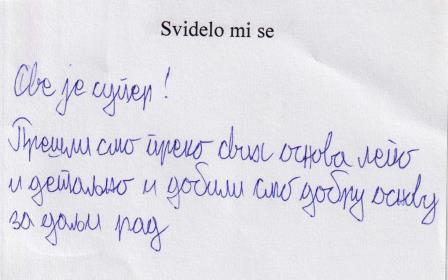 Svidelo mi se
Све је супер!
Прешли смо преко свих основа лепо
и детаљно и добили смо добру основу
за даљи рад